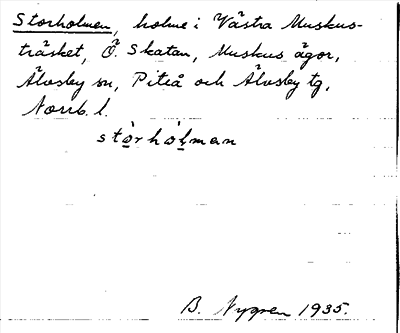 Storholmen, holme i Västra Muskus-
träsket, Ö. Skatan, Muskus ägor,
Älvsby sn, Piteå och Älvsby tg,
Norrb. l.
stòrhòlman
B. Nygren 1935.